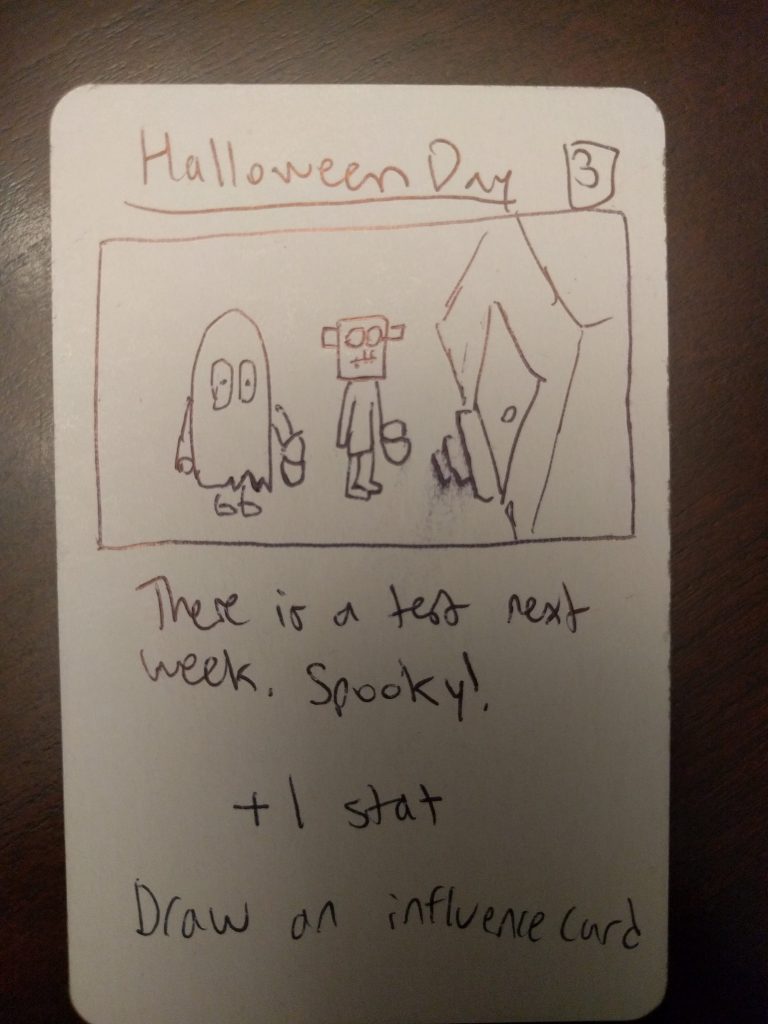 Halloween Day 3
There is a test next
week. Spooky!
+1 stat
Draw an influence card